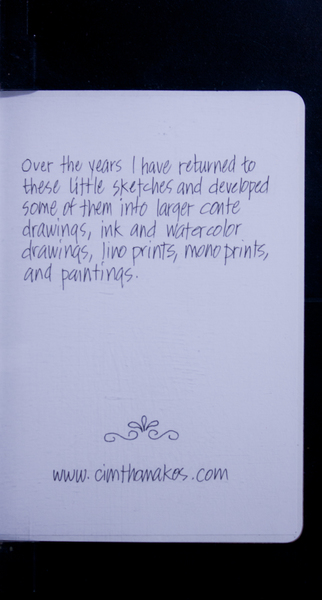 Over the years I have returned to
these little sketches and developed
some of them into larger conte
drawings, ink and watercolor
drawings, lino prints, mono prints,
and paintings.
www.cimthomakos.com